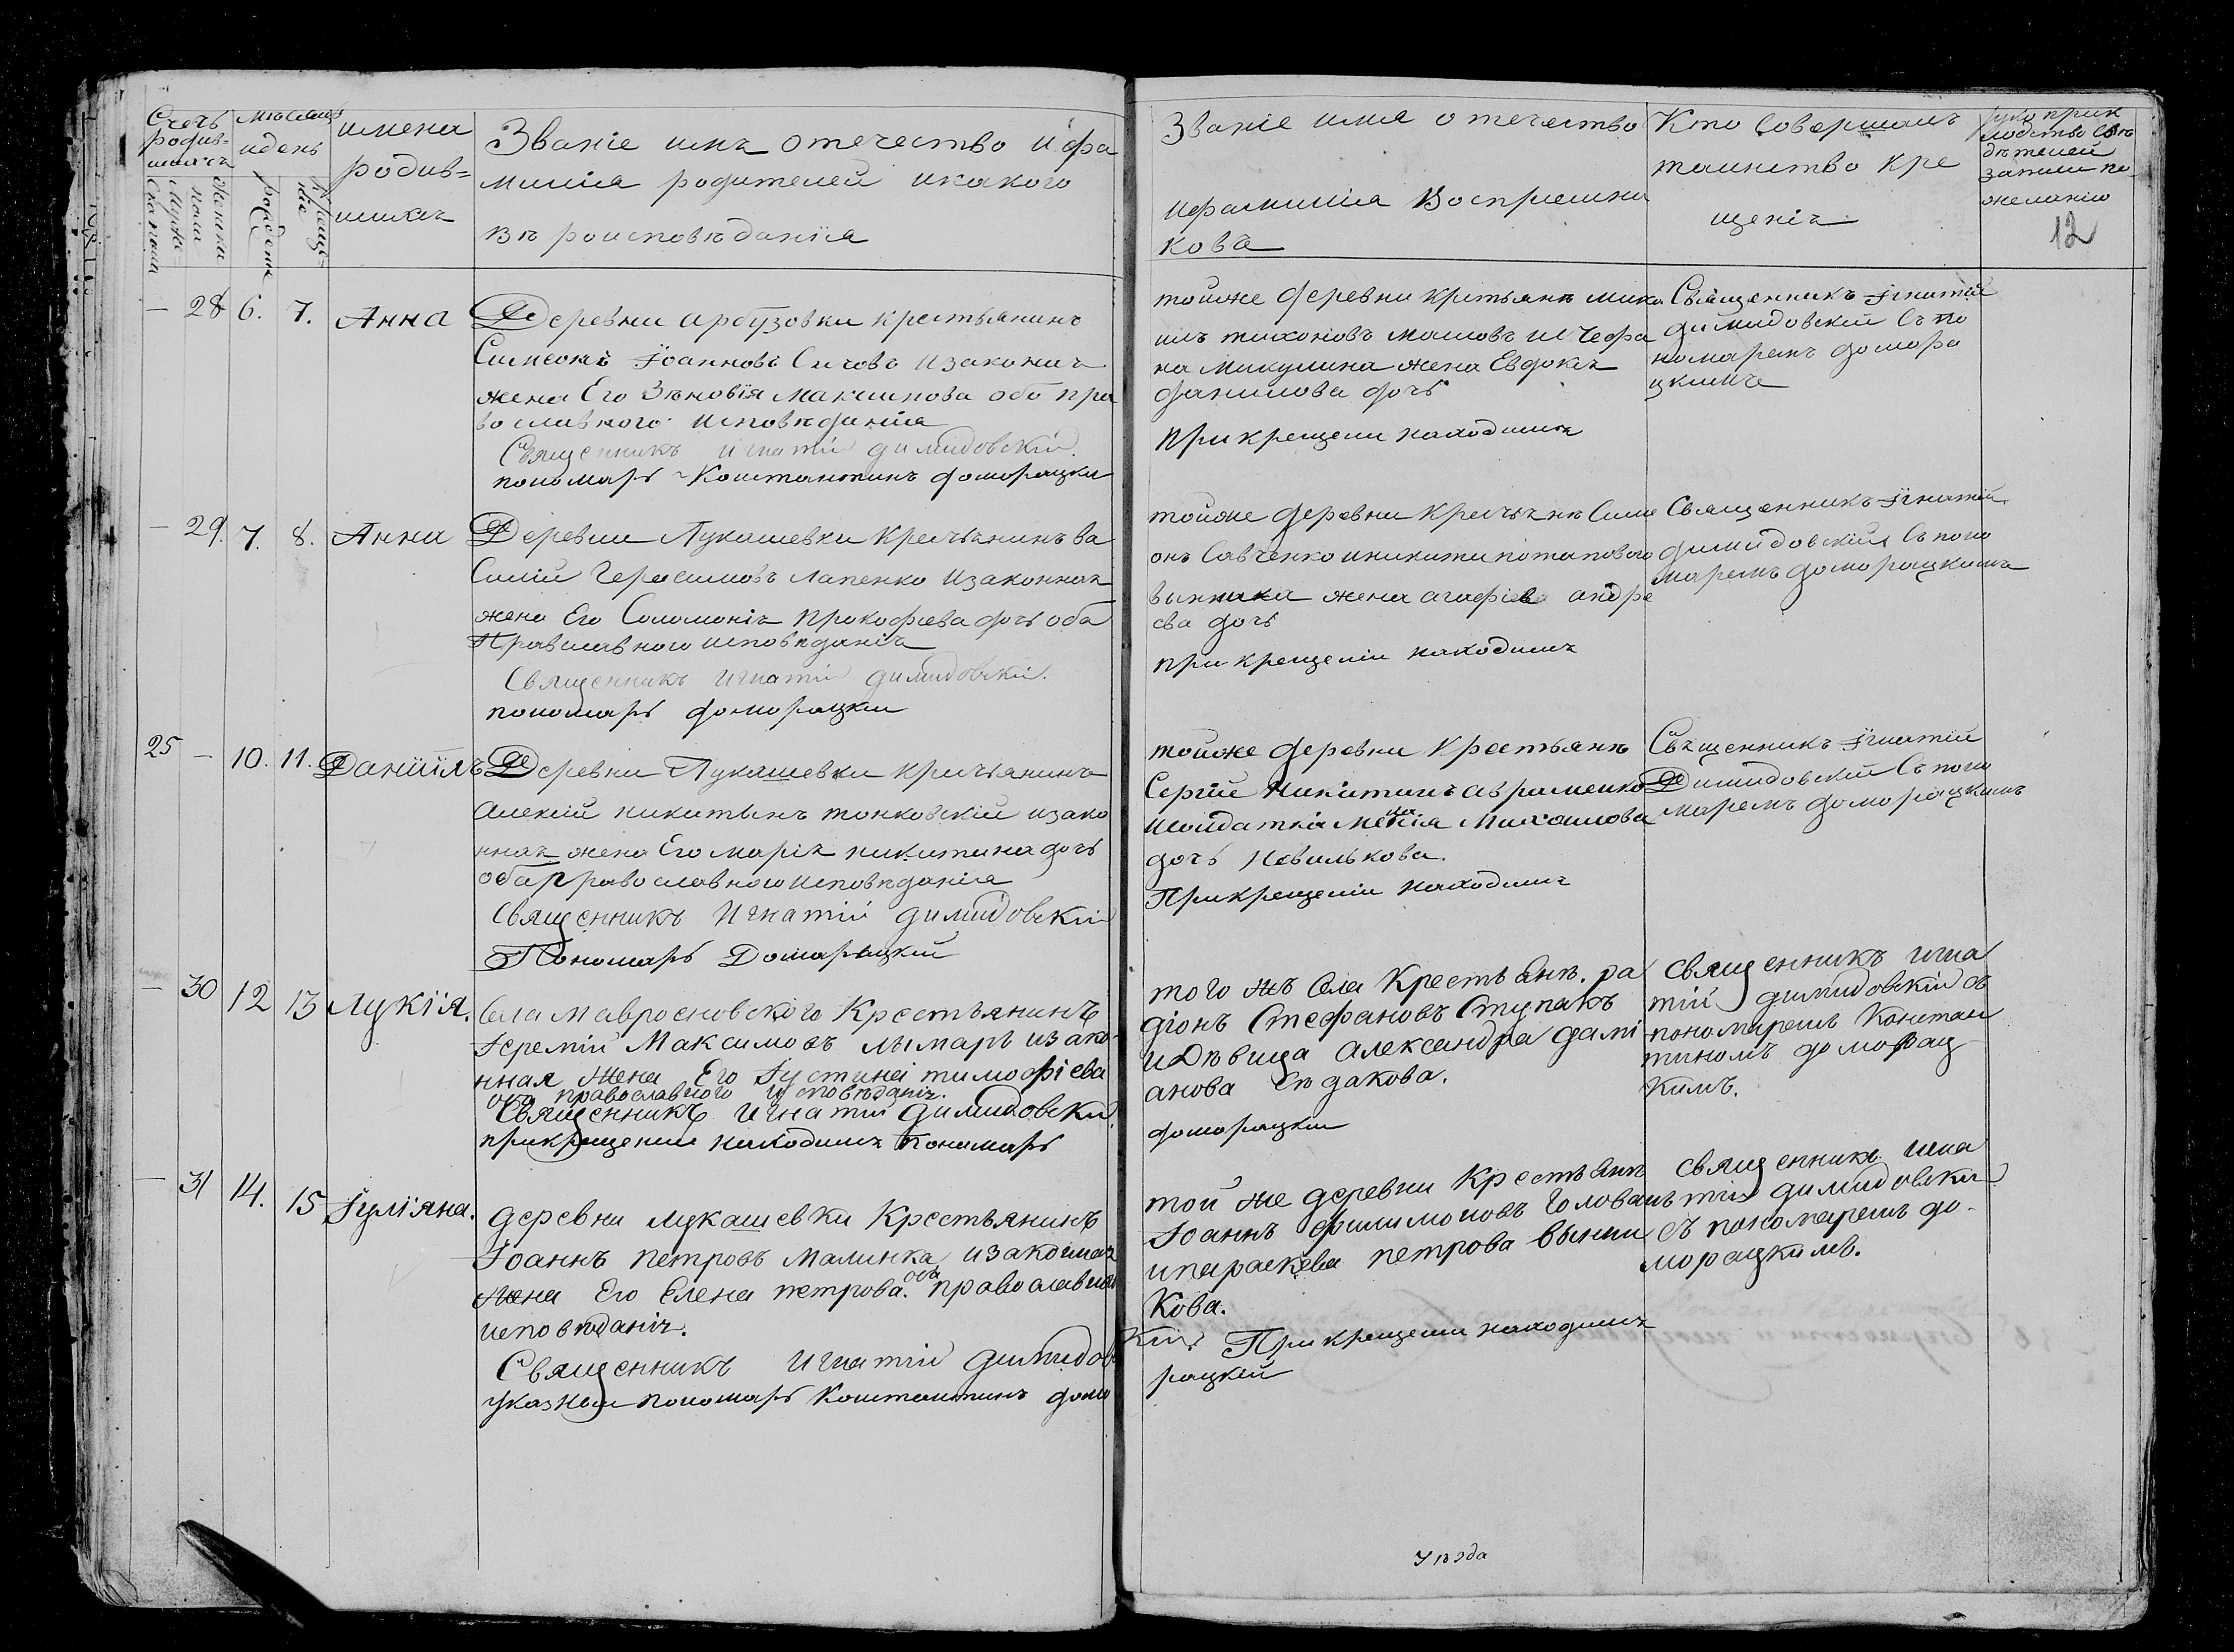 Счетъ родив-
шихся
Мѣсяцъ
и день
имена
родив=
шихся
Званіе имя отечество и фа
миліа родителей и какого
вѣроисповѣданіа
Мужеска
пола
Женска
рожденія
Креще-
ніе
Званіе имя отечество
и фамиліа Воспріемни
ковъ
Кто Совершалъ
таинство кре
щенія
руко прик
ладство Свѣ
дѣтелей
записи по
желанію
12
— 28 6. 7. Анна Деревни арбузовки крестьянинъ
Симеонъ Іоанновъ Сичовъ Изаконная
жена Его Зѣновія Максимова обо пра
вославного Исповѣданіа
Священникъ Игнатій димидовскій.
пономарь Констант​инъ доморацки
тойже деревни крестьянъ
илъ тихоновъ
на Микулина жена Евдокія
данилова дочь
при крещеніи находился
Священникъ Ігнатій
димидовскій Съ по
номаремъ домора
цкимъ
— 29. 7. 8. Анна Деревни Лукашевки Крестьянинъ ва
Силій Герасимовъ Лапенко Изаконная
жена Его Соломонія Прокофіева дочь оба
Православного исповѣданія
Священникъ Игнатій димидовскій.
пономарь доморацки
тойже деревни Крестьянъ Симе
онъ Савченко и никити потапового
винника жена агафіева андре
ева дочь
при крещеніи находился
Священникъ Ігнатій
димидовскій Съ поно
маремъ доморацкимъ
25 — 10. 11. Даніилъ Деревни Лукашевки крестьянинъ
Алексій никитынъ тонковскій изако
нная жена Его марія никитина дочь
оба православного исповѣданіа
Священникъ Игнатій димидовскій
Пономарь Доморацкій
тойже деревни Крестьянъ
Сергій Никитинъ авраменко
Исолдатка Михаилова
дочь Ковалькова.
При крещеніи находился
Священникъ Ігнатій
Димидовскій Съ поно
маремъ доморацкимъ
— 30 12 13 Лукія. Села мавроеновского Крестьянинъ
Іеремій Максимовъ лымарь изако-
нная жена Его Іустина тимофіева
оба православного исповѣданія.
Священникъ Игнатій димидовскій.
при крещеніи находился пономарь
того жъ села Крестьянъ. ра
діонъ Стефановъ Ступакъ
и дѣвица Александра дамі
анова Ѣдакова.
доморацки
священникъ игна
тій димидовскій съ
пономаремъ Констан
тиномъ доморац
кимъ.
— 31 14. 15 Іуліяна. деревни лукашевки Крестьянинъ
Іоаннъ петровъ малинка изаконная
жена Его Елена петрова. оба православного
исповѣданія.
Священникъ Игнатій димидов
указный пономарь Константинъ домо
той же деревни Крестьянъ
Іоаннъ филимоновъ Головань
ипараскева петрова винни
кова.
кій. При крещеніи находился
рацкій
священникъ игна
тій димидовскій
съ пономаремъ до-
морацкимъ.
Уѣзда